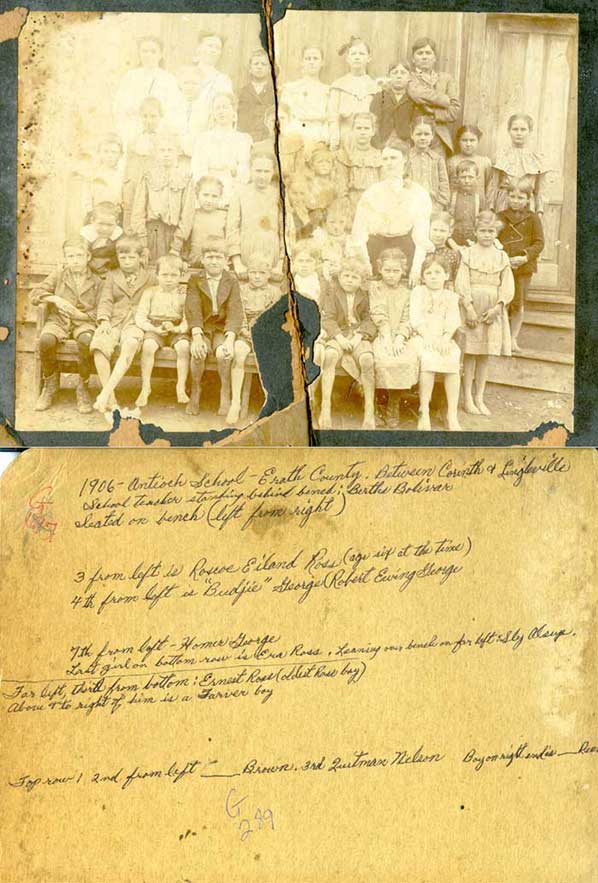 1906 - Antioch School - Erath County. Between Corinth & Lingleville
School teacher standing behind bench; Bertha Bolivar
Seated on bench (left from right)
3 from left is Roscoe Eiland Ross (age six at the time)
4th from left is "Budjie" George (Robert Ewing George
7th from left - Homer George
Last girl on bottom row is Era Ross. Leaning over bench on far left: Sby Alsup.
Far left, third from bottom: Ernest Ross (oldest Ross boy)
Above & to right of him is a Farver boy
Top row 1 2nd from left ___ Brown. 3rd Quitman Nelson Boy on right end is ___
G
289